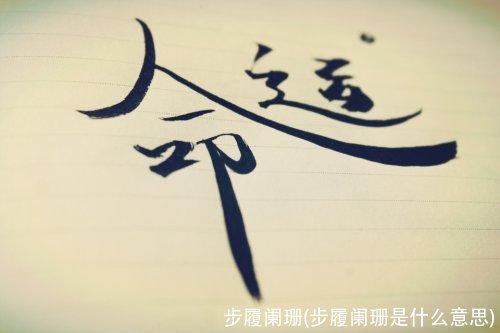 命运
步履阑珊(步履阑珊是什么意思)